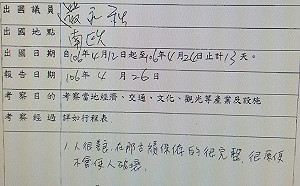 出國議員
出國地點 南歐
出國日期 自106年4月12日起至106年4月24日計13天。
報告日期 106年 4 月 26 日
考察目的 考察當地經濟、交通、文化、觀光等產業及設施
考察經過 詳如行程表
1.人很善,在那古蹟保存的很完整,很原價
不會使人破壞.